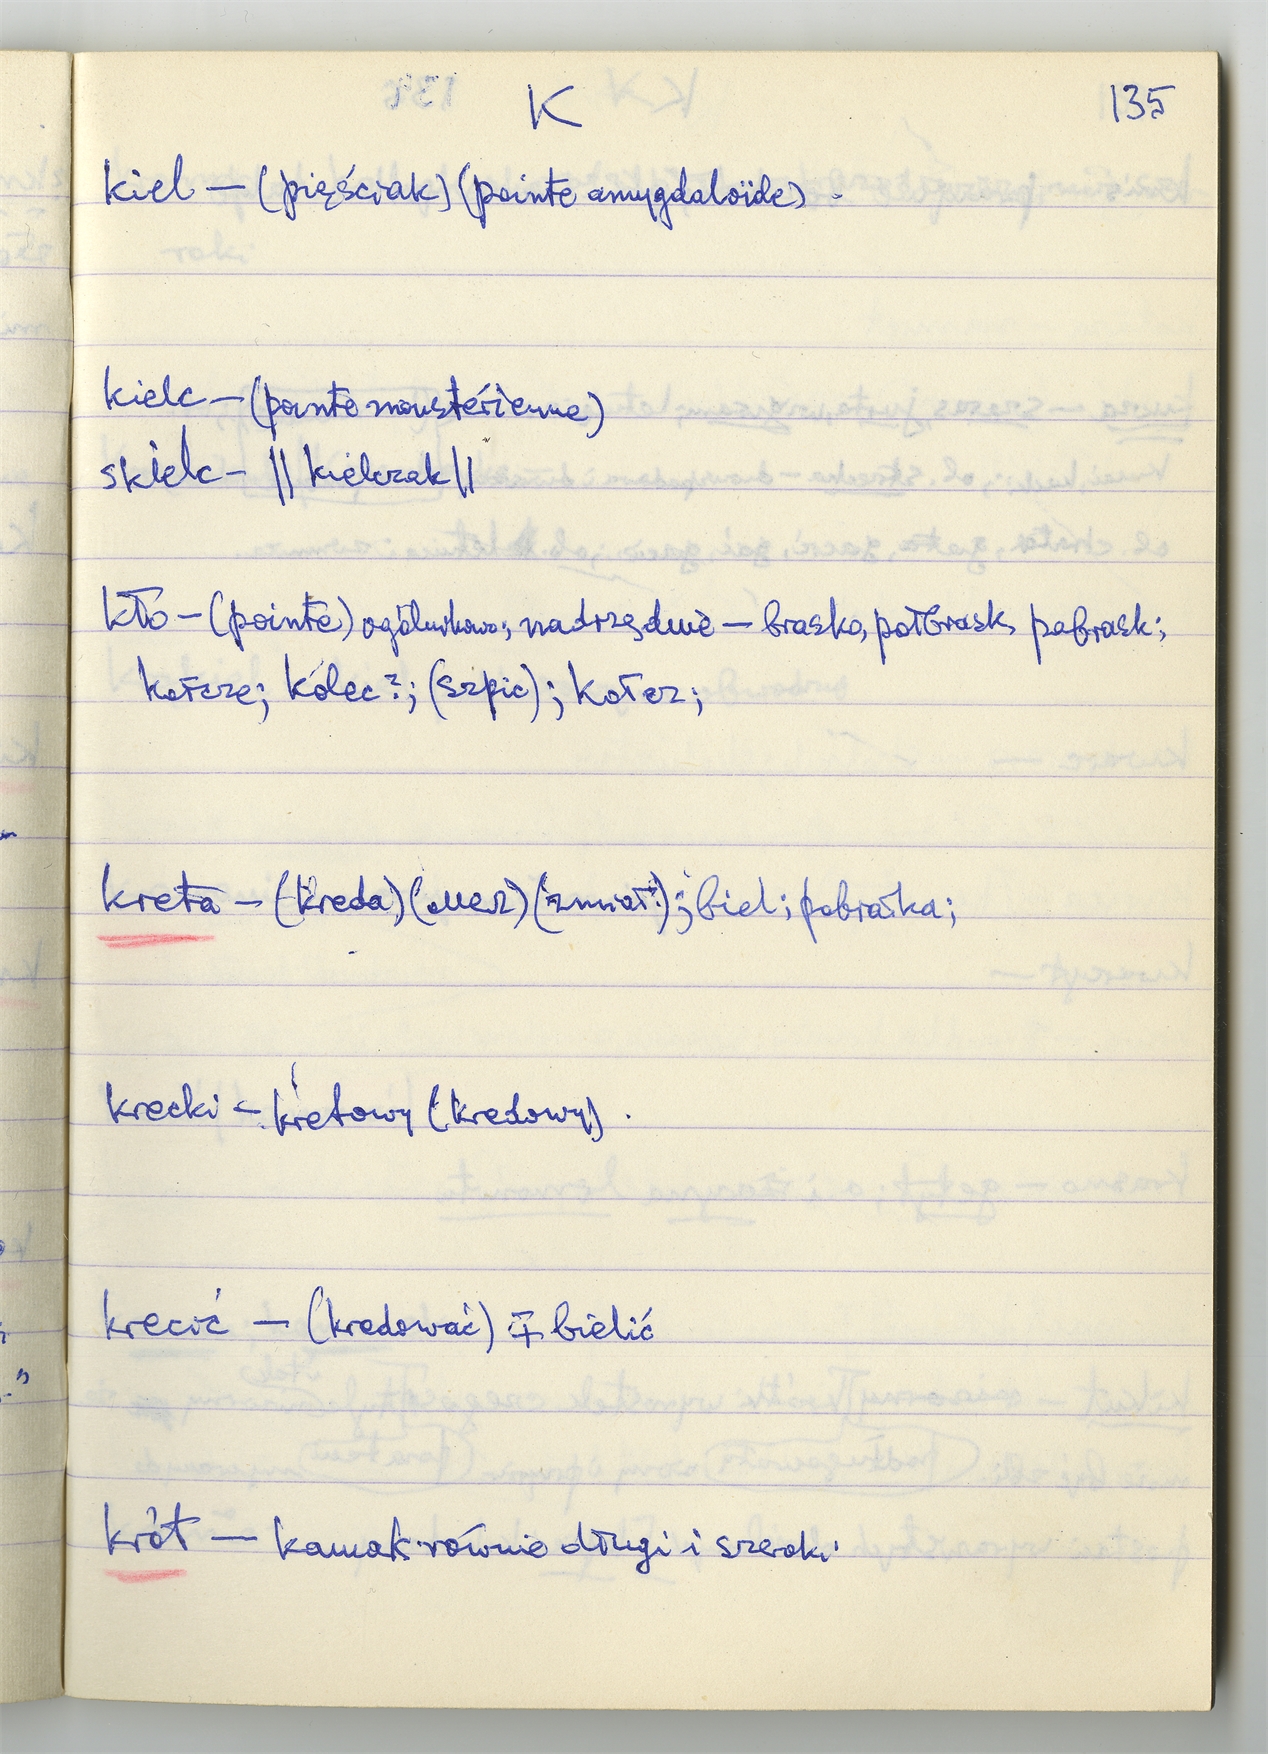 K 135
kiel — (pięściak) (pointe amygdaloïde).
kielc — (pointe moustérienne)
skielc — || kielczak ||
kło — (pointe) ogólnikowo; nadrzędnie — brasko, połbrask, pabrask;
kołcze; kólec?; (szpic); kołcz;
kreta — (kreda) (zmiał?); biel; pobrałka;
krecki — kretowy (kredowy).
krecić — (kredować) bielić
krót — kamak równie długi i szeroki